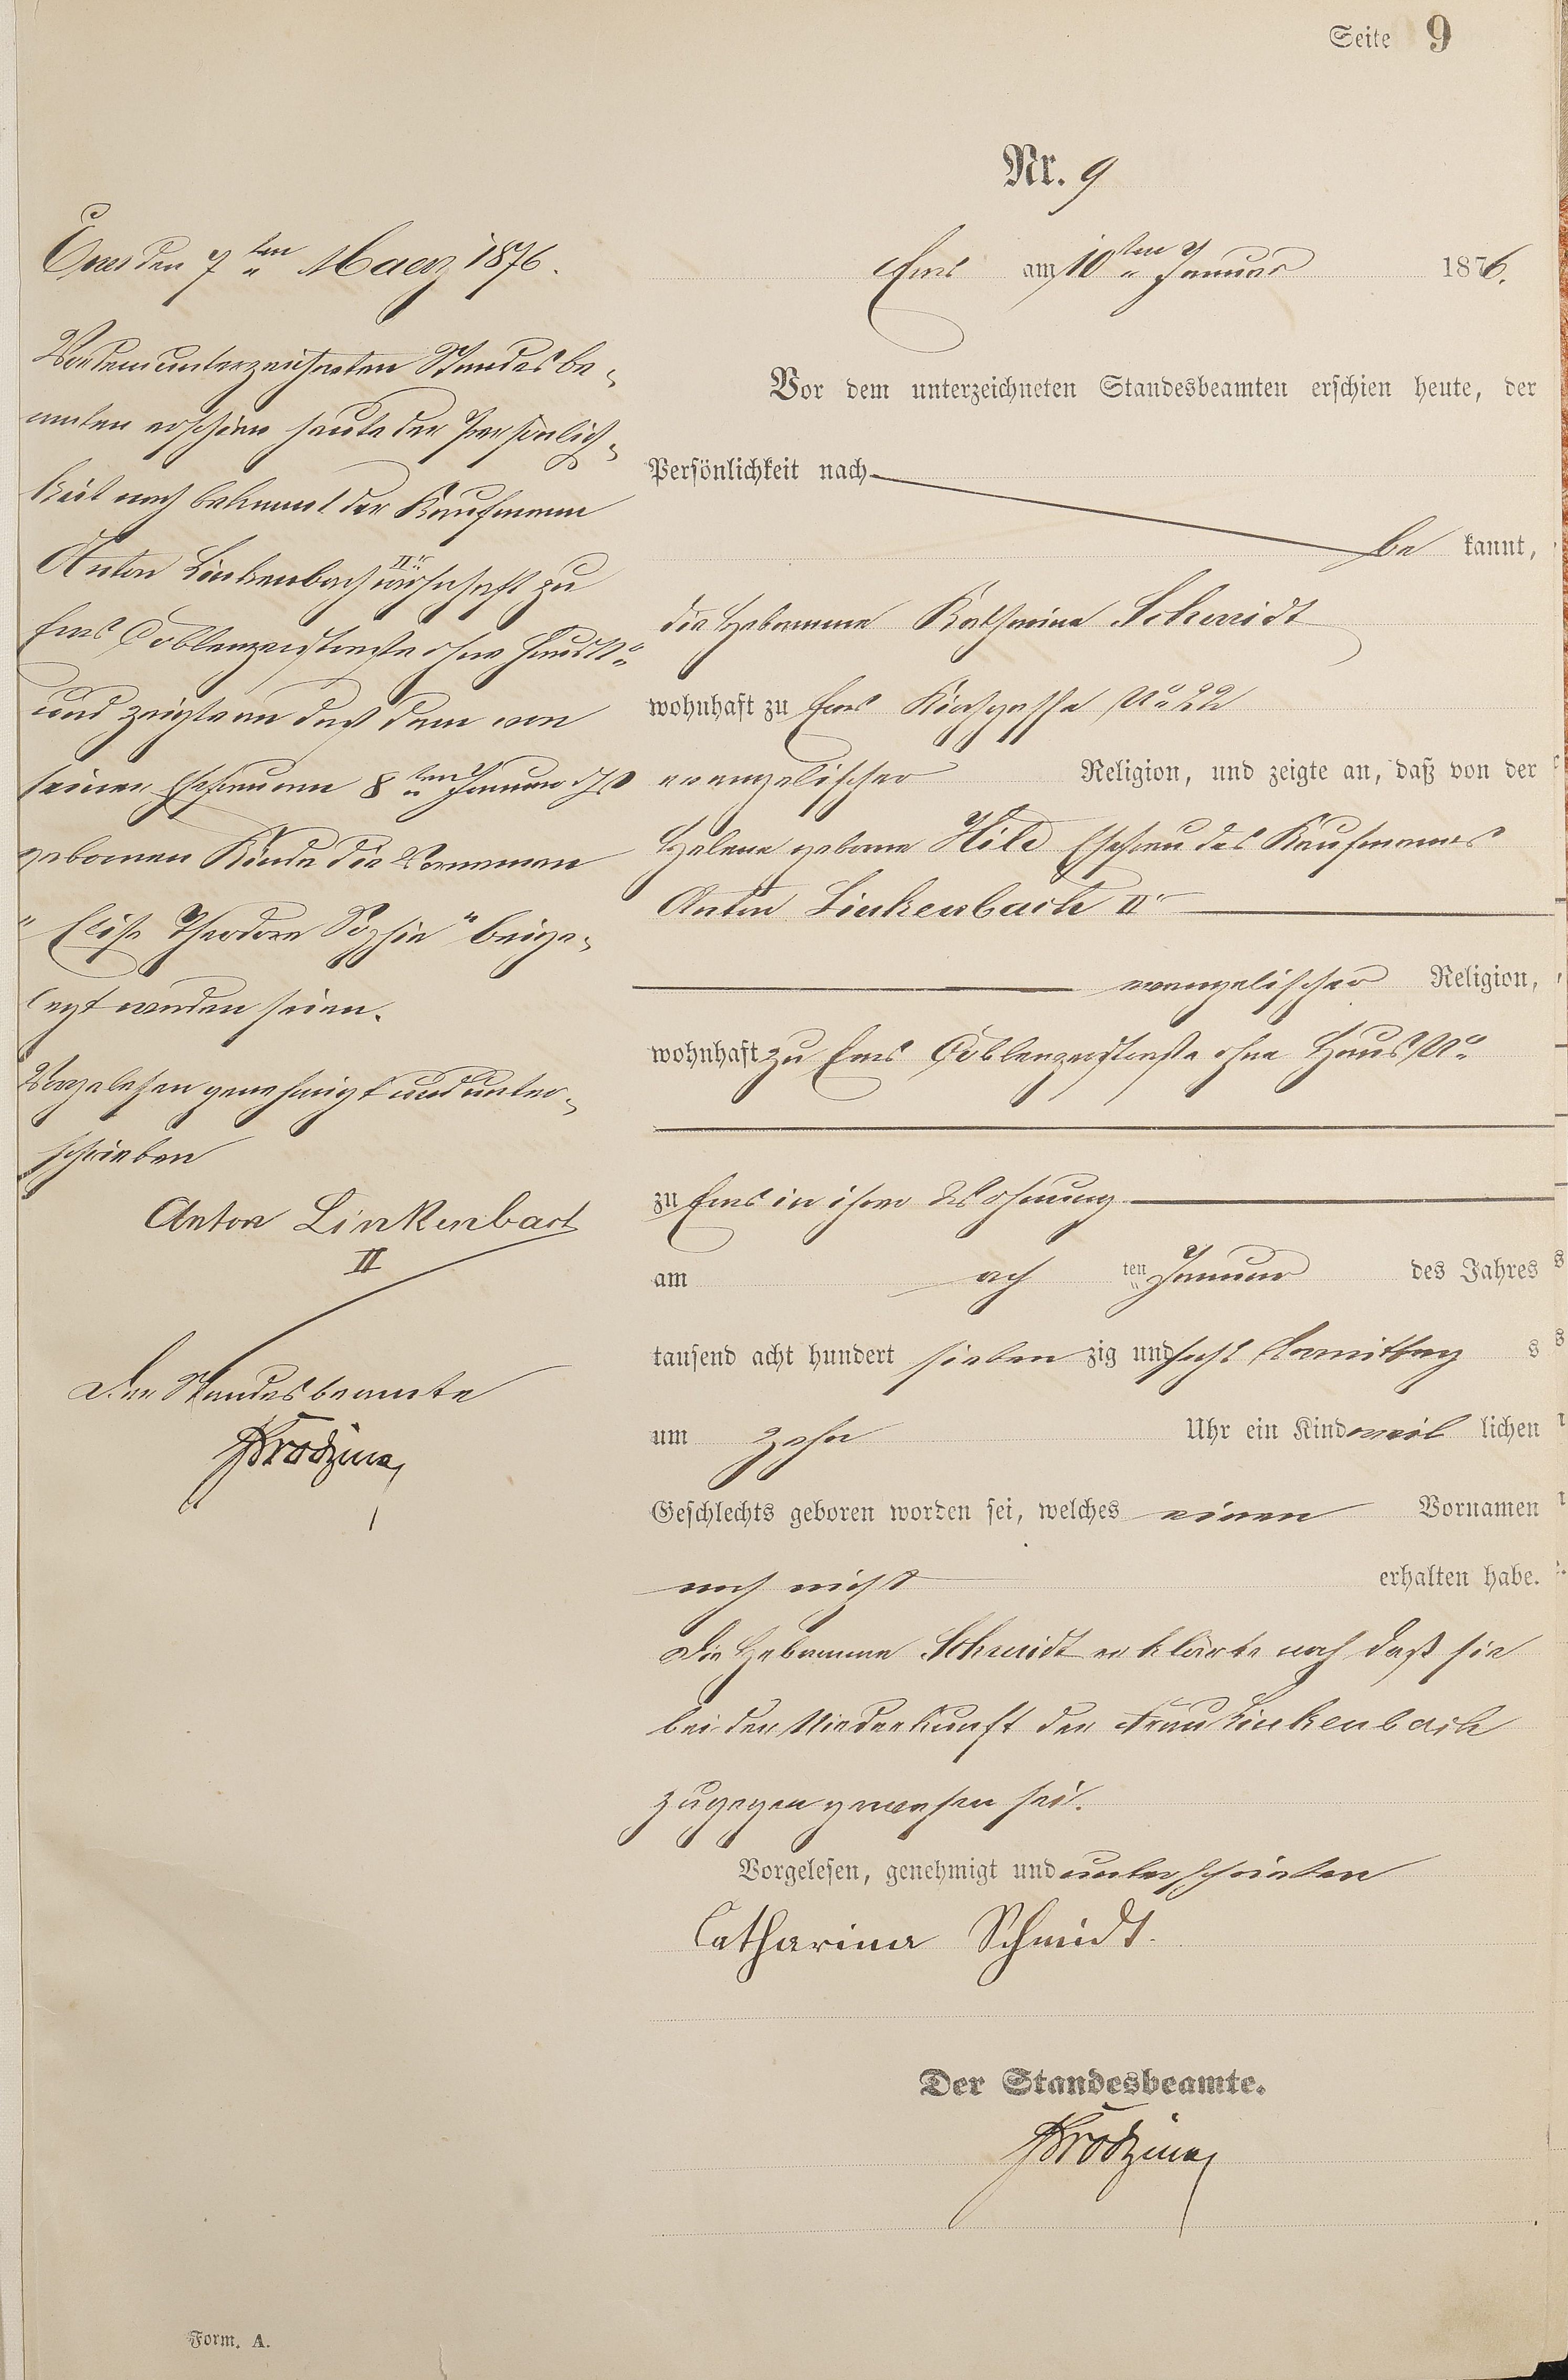 Seite 9
Nr. 9
Ems den 7ten Maerz 1876.
Vor dem unterzeichneten Standesbe-
amten erschien heute der Persönlich-
keit nach bekannt der Kaufmann
Anton Linkenbach IIr wohnhaft zu
Ems Coblenzerstraße ohne Haus No
und zeigte an daß dem von
seiner Ehefrau am 8ten Januar
gebornen Kinde die Vornamen
"Elise Theodore Sophie" beige-
legt worden seien.
Vorgelesen genehmigt und unter-
schrieben
Anton Linkenbach
II
Der Standesbeamte
Ems am 10ten Januar 1876.
Vor dem unterzeichneten Standesbeamten erschien heute, der
Persönlichkeit nach
be kannt,
die Hebamme Katharina Schmidt
wohnhaft zu Ems Kirchgasse No 22
evangelischer Religion, und zeigte an, daß von der
Helene geborne Hild Ehefrau des Kaufmannes
Anton Linkenbach IIr
evangelischer Religion,
wohnhaft zu Ems Coblenzerstraße ohne Haus No
zu Ems in ihrer Wohnung
am ach ten Januar des Jahres
tausend acht hundert sieben zig und sechs Vormittag s
um zehn Uhr ein Kind weib lichen
Geschlechts geboren worden sei, welches einen Vornamen
noch nicht erhalten habe.
Die Hebamme Schmidt erklärte noch daß sie
bei der Niederkunft der Frau Linkenbach
zugegen gewesen sei.
Vorgelesen, genehmigt und unterschrieben
Catharina Schmidt.
Der Standesbeamte.
Form. A.